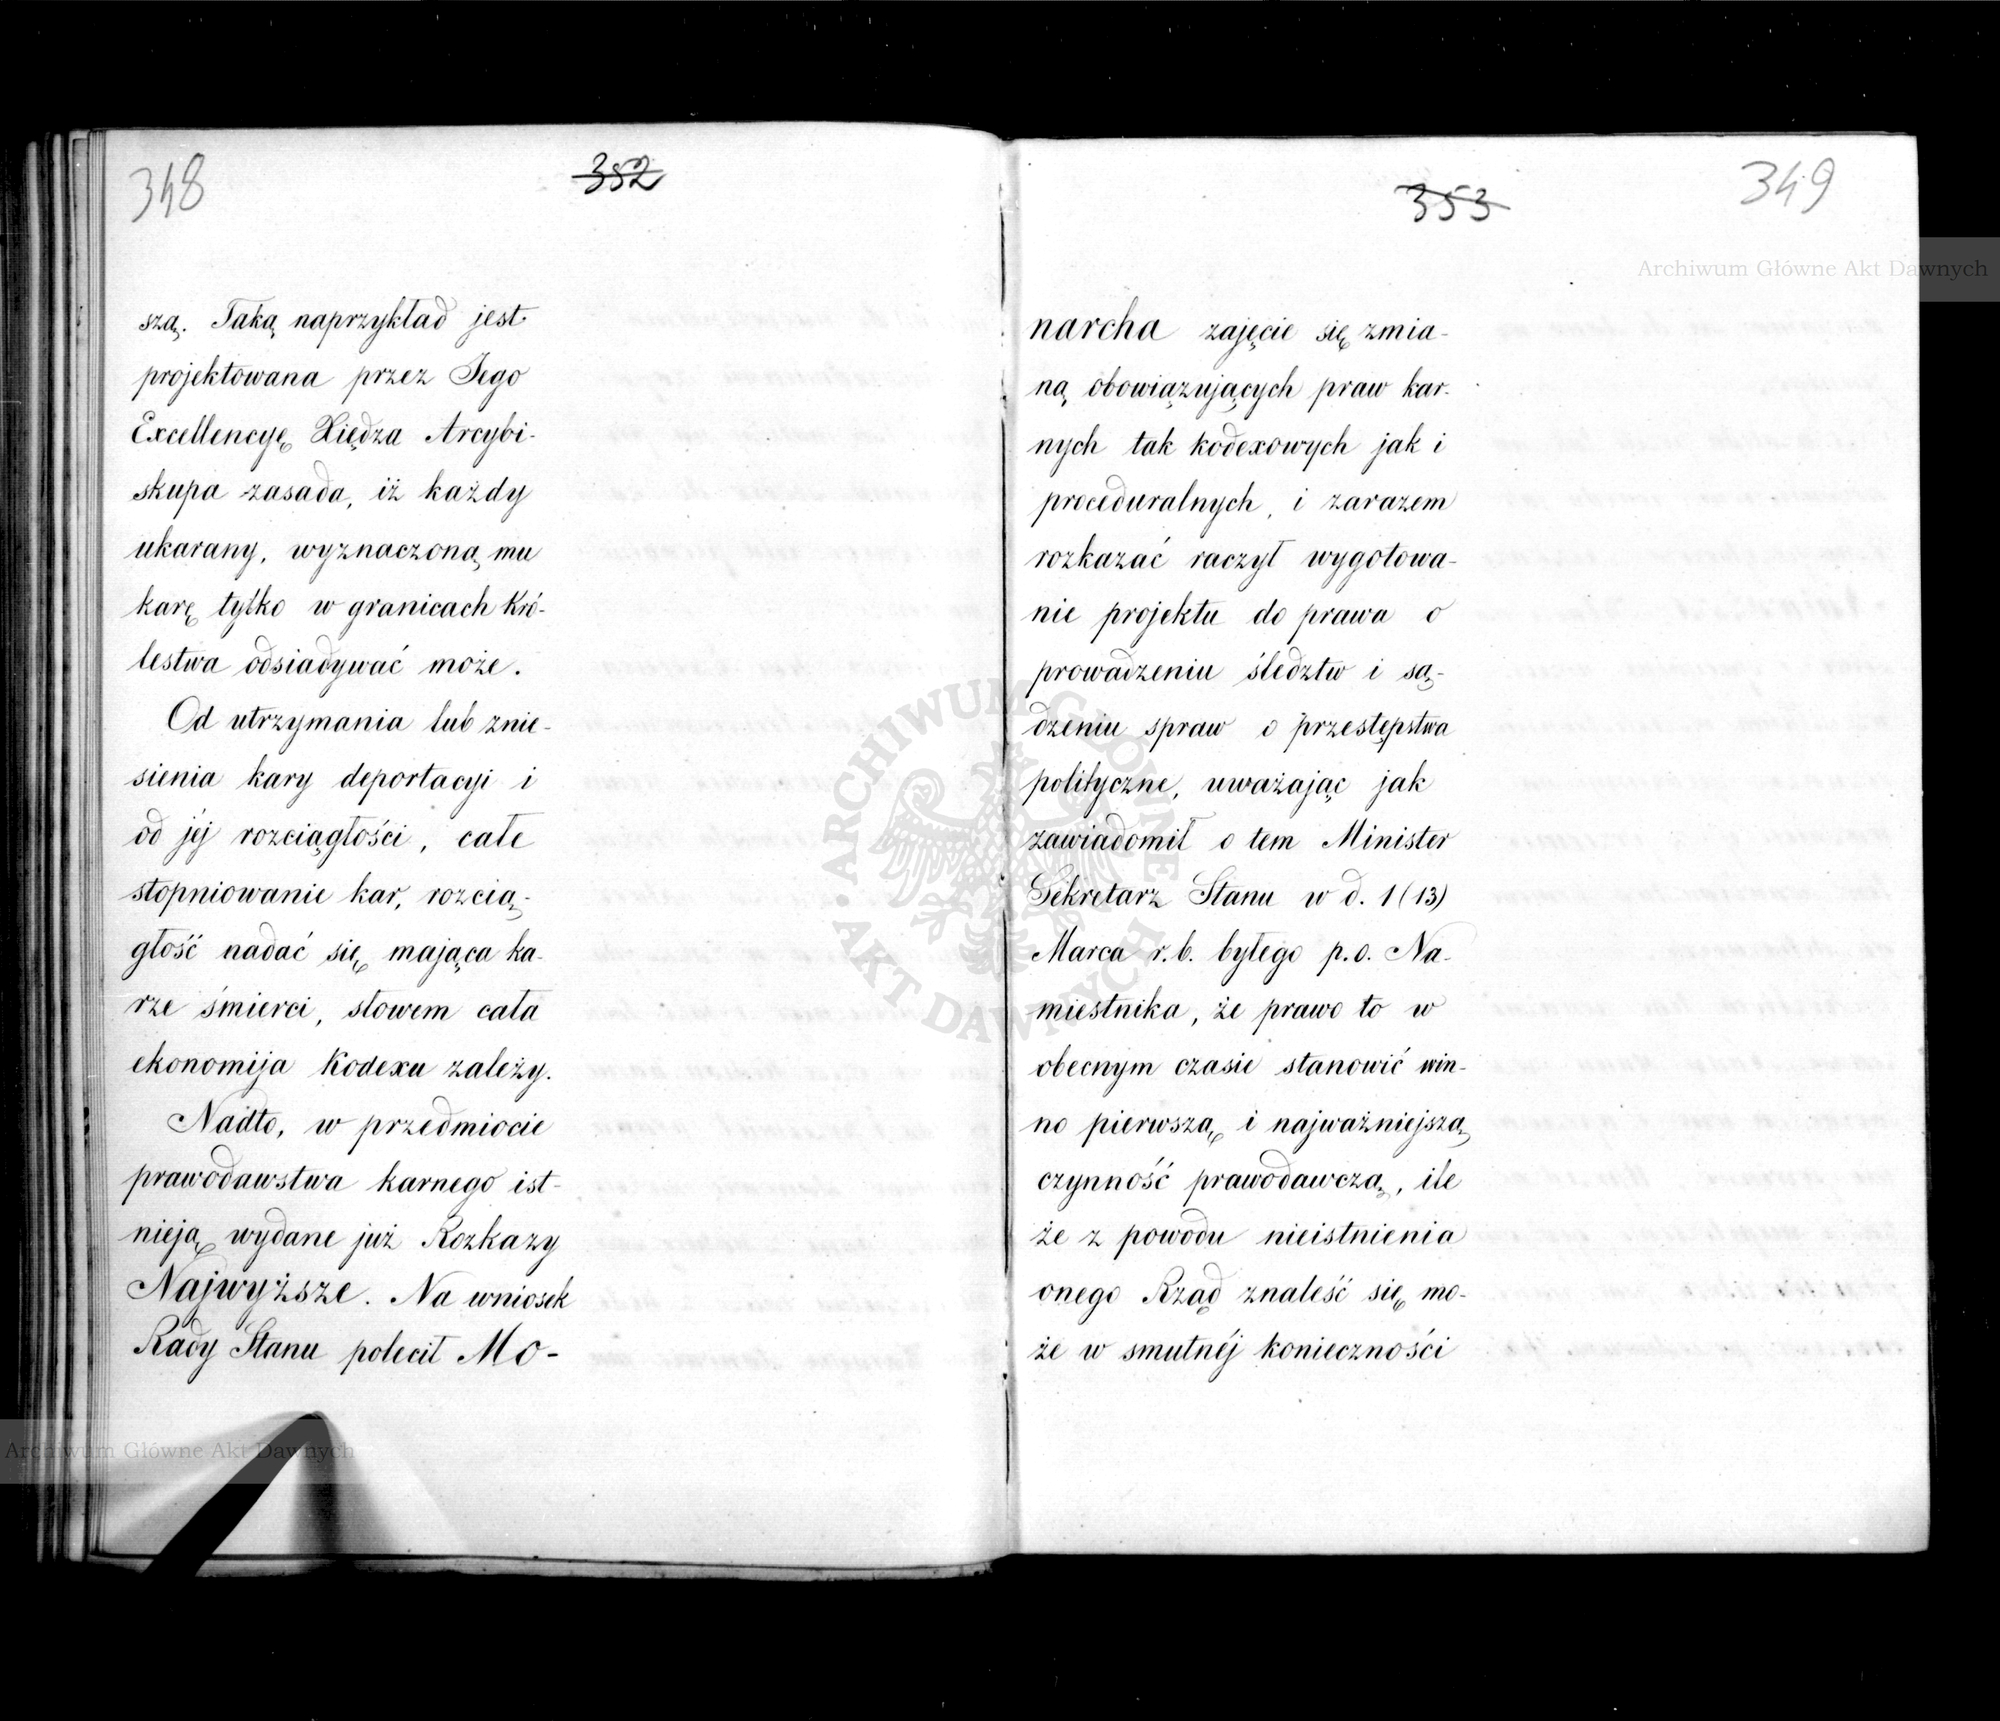 348
352
szą. Taką naprzykład jest
projektowana przez Jego
Excellencyę Xiędza Arcybi-
skupa zasada, iż każdy
ukarany, wyznaczoną mu
karę tylko w granicach Kró-
lestwa odsiadywać może.
Od utrzymania lub znie-
sienia kary deportacyi i
od jéj rozciągłości, całe
stopniowanie kar, rozcią-
głość nadać się mająca ka-
rze śmierci, słowem cała
ekonomija Kodexu zależy.
Nadto, w przedmiocie
prawodawstwa karnego ist-
nieją wydane już Rozkazy
Najwyższe. Na wniosek
Rady Stanu polecił Mo-
353
349
Archiwum Główne Akt Dawnych
narcha zajęcie się zmia-
ną obowiązujących praw kar-
nych tak kodexowych jak i
proceduralnych, i zarazem
rozkazać raczył wygotowa-
nie projektu do prawa o
prowadzeniu śledztw i są-
dzeniu spraw o przestępstwa
polityczne, uważając jak
zawiadomił o tem Minister
Sekretarz Stanu w d. 1 (13)
Marca r. b. byłego p. o. Na-
miestnika, że prawo to w
obecnym czasie stanowić win-
no pierwszą i najważniejszą
czynność prawodawczą, ile
że z powodu nieistnienia
onego Rząd znaleść się mo-
że w smutnéj konieczności
ARCHIWUM GŁÓWNE AKT DAWNYCH
Archiwum Główne Akt Dawnych